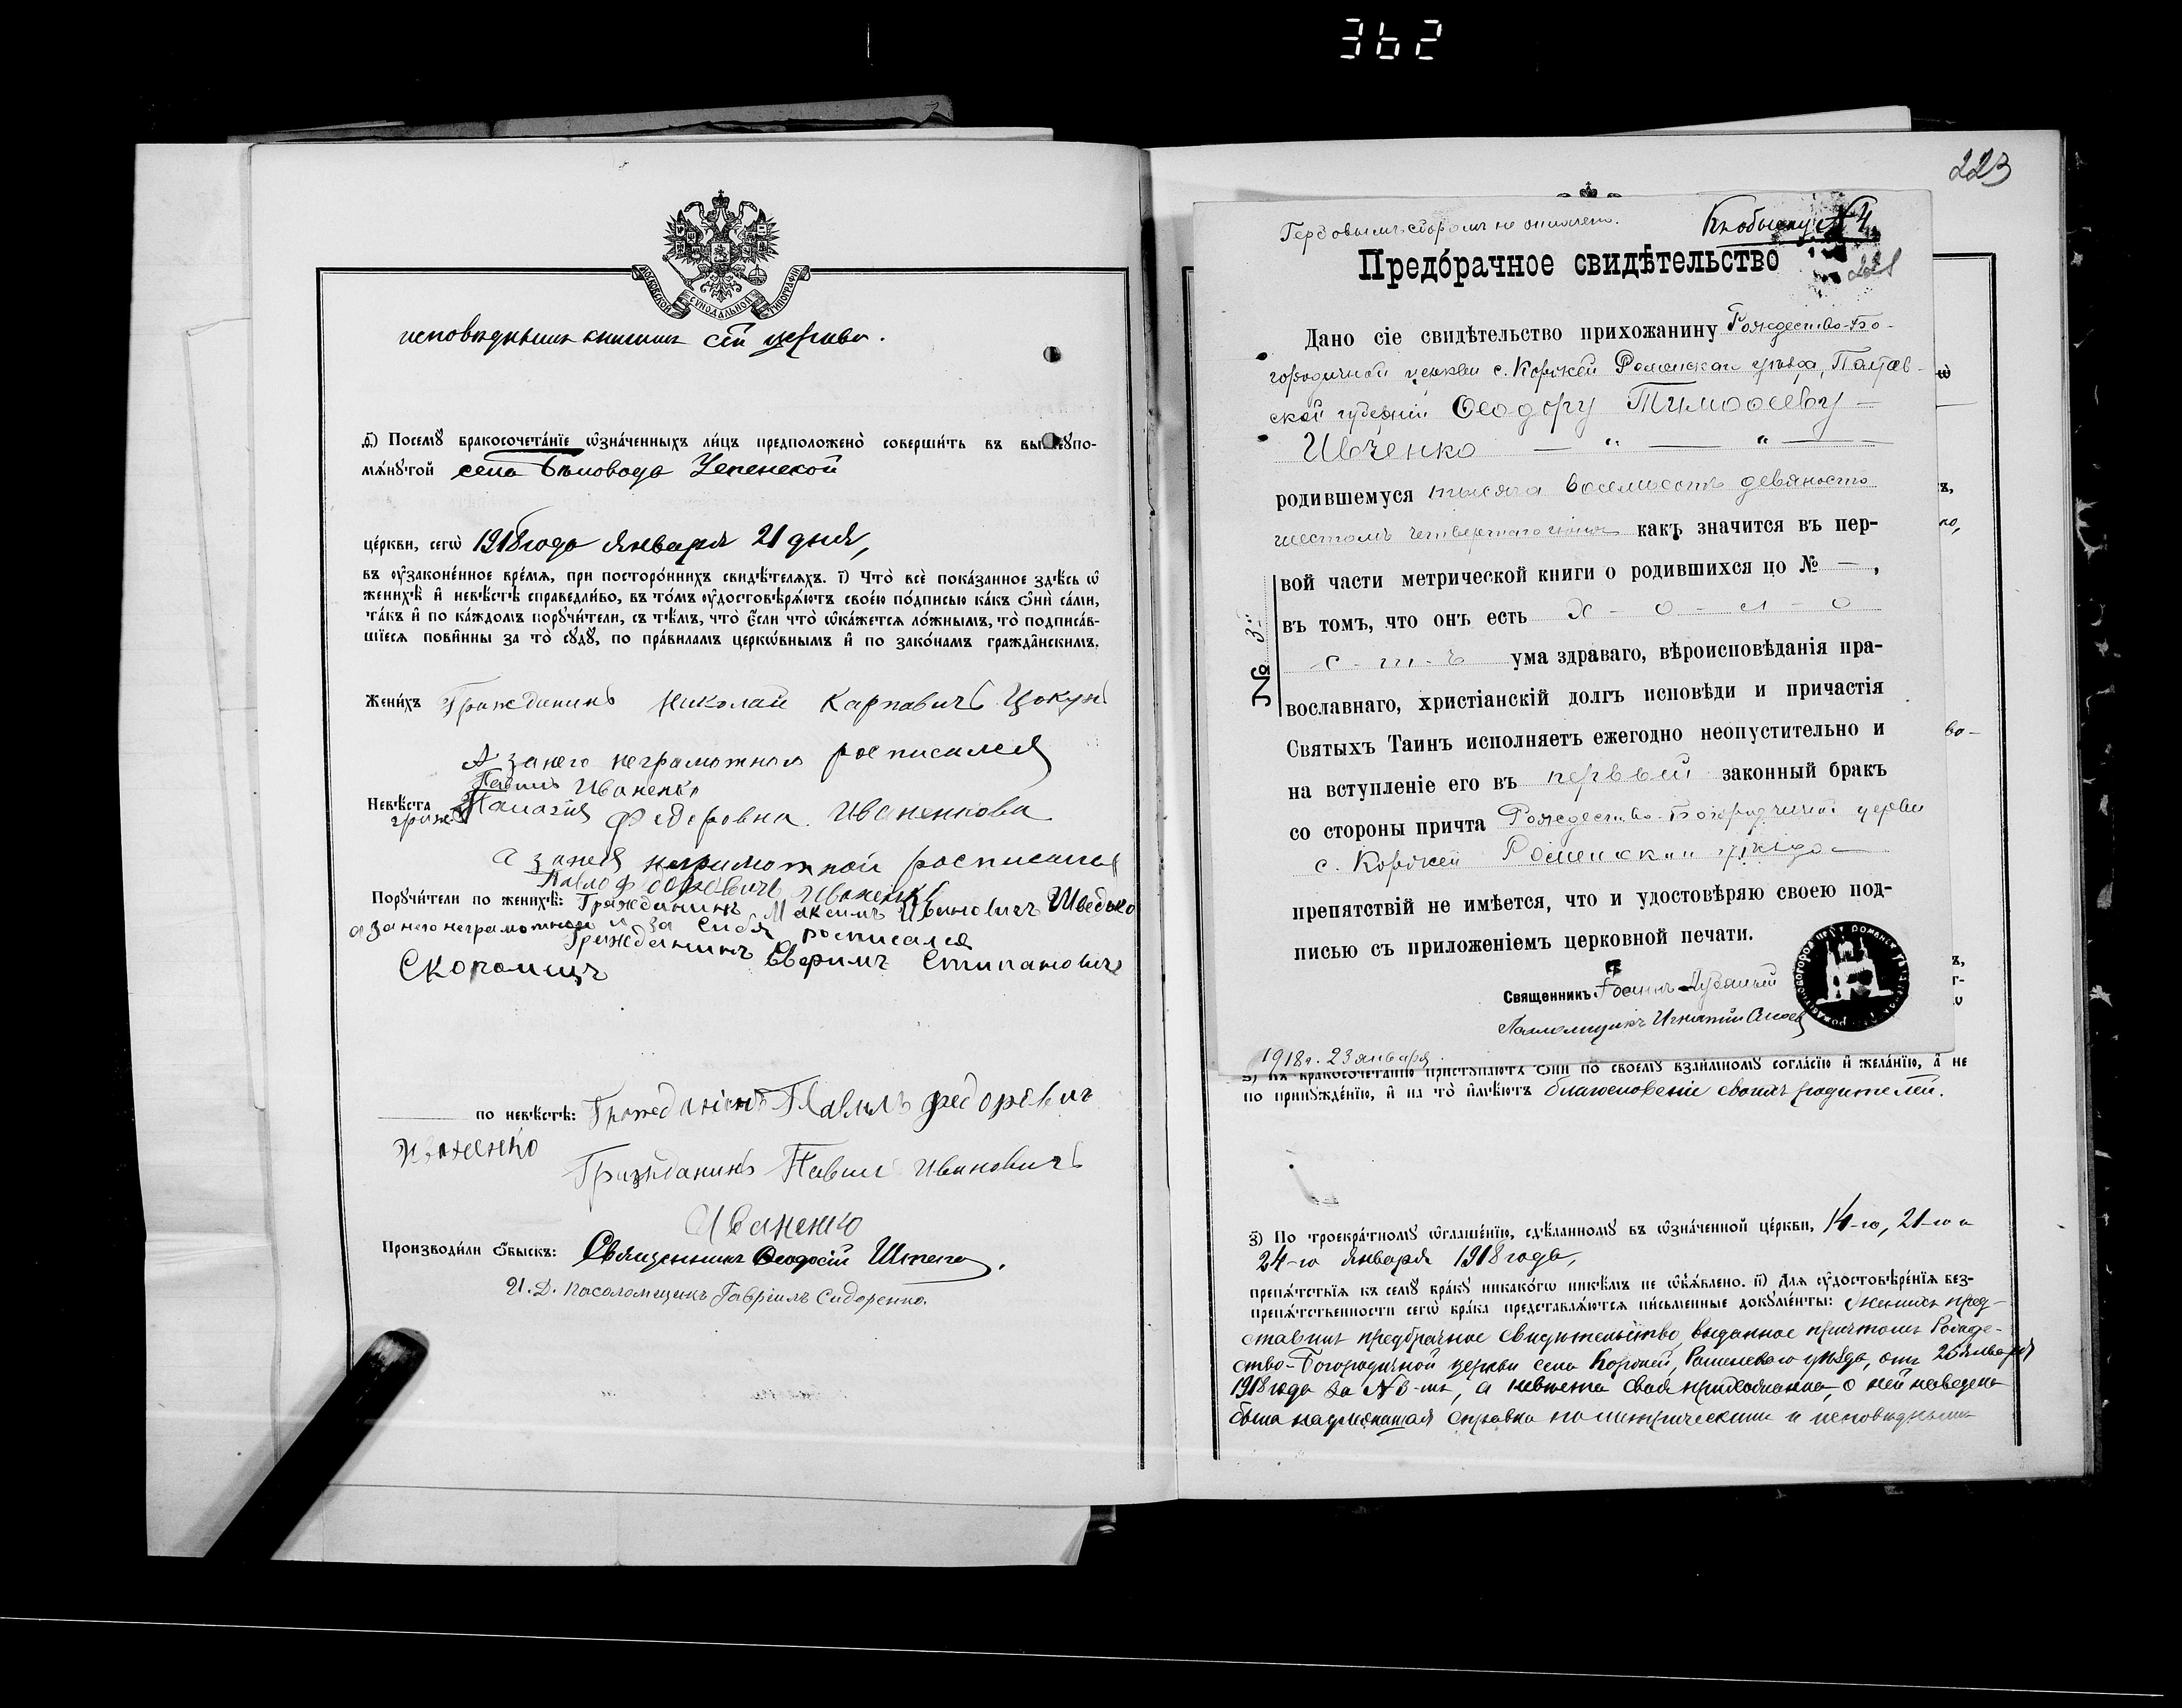 362
223
МОСКОВСКОЙ СУНОДАЛЬНОЙ ТИПОГРАФІИ
исповѣднымъ книгамъ сей церкви.
д҃і) Посемꙋ̀ бракосочета́нїе ѡ҆зна́ченныхъ ли́цъ предположено̀ соверши́ть въ вышеꙋпо-
мѧ́нꙋтой села Бѣловода Успенской
це́ркви, сегѡ̀ 1918 года января 21 дня,
въ ᲂу҆законе́нное вре́мѧ, при посторо́ннихъ свидѣ́телѧхъ. і҃) Что̀ всѐ пока́занное здѣ́сь ѡ҆
женихѣ̀ и҆ невѣ́стѣ справедли́во, въ то́мъ ᲂу҆достовѣрѧ́ютъ свое́ю по́дписью ка́къ ѻ҆нѝ са́ми,
та́къ и҆ по ка́ждомъ порꙋчи́тели, съ тѣ́мъ, что̀ є҆́сли что̀ ѡ҆ка́жетсѧ ло́жнымъ, то̀ подписа́в-
шїесѧ пови́нны за то̀ сꙋдꙋ̀, по пра́виламъ церко́внымъ и҆ по зако́намъ гражда́нскимъ.
Жени́хъ Гражданинъ Николай Карповичъ Цокунъ
А за него неграмотнаго росписался
Павилъ Иваненко
Невѣ́ста граж. Палагія Федоровна Иваненкова
а за нея неграмотной росписался
Павло Федоровичъ Иваненко
Порꙋчи́тели по женихѣ̀: Гражданинъ Максимъ Ивановичъ Шведько
а за него неграмотнаго и за себя росписался
Гражданинъ Ефримъ Стипановичъ
Скоромицъ
по невѣ́стѣ: Гражданинъ Павилъ Федоровичъ
Иваненко
Гражданинъ Павил Ивановичъ
Иваненко
Производи́ли ѻ҆́быскъ: Священникъ Ѳеодосій Штепа.
И. Д. псаломщикъ Гавріилъ Сидоренко.
Гербовымъ сборомъ не оплачено.
Къ обыску № 4
221
Предбрачное свидѣтельство
Дано сіе свидѣтельство прихожанину Рождество-Бо-
городичной церкви с. Коржей Роменскаго уѣзда, Полтав-
ской губерніи Ѳеодору Тимоѳееву —
Ивченко — " — " —
родившемуся тысяча восемьсотъ девяносто
шестомъ четвертаго іюня какъ значится въ пер-
вой части метрической книги о родившихся по № — ,
въ томъ, что онъ есть х - о - л - о
с - т - ъ ума здраваго, вѣроисповѣданія пра-
вославнаго, христіанскій долгъ исповѣди и причастія
Святыхъ Таинъ исполняетъ ежегодно неопустительно и
на вступленіе его въ первый законный бракъ
со стороны причта Рождество-Богородичной церкви
с. Коржей Роменскаго уѣзда —
препятствій не имѣется, что и удостовѣряю своею под-
писью съ приложеніемъ церковной печати.
№ 3
Священникъ
Псаломщикъ Игнатій
1918 г. 23 января.
ѕ҃) Къ бракосочета́нїю пристꙋпа́ютъ ѻ҆нѝ по своемꙋ̀ взаи́мномꙋ согла́сїю и҆ жела́нїю, а҆ не
по принꙋжде́нїю, и҆ на то̀ и҆мѣ́ютъ благословеніе своихъ родителей.
з҃) По троекра́тномꙋ ѡ҆глаше́нїю, сдѣ́ланномꙋ въ ѡ҆зна́ченной це́ркви, 14-го, 21-го и
24-го января 1918 года,
препѧ́тствїѧ къ семꙋ̀ бра́кꙋ никако́гѡ никѣ́мъ не ѡ҆б̾ѧ́влено. и҃) Для ᲂу҆достовѣре́нїѧ без-
препѧ́тственности сегѡ̀ бра́ка представлѧ́ютсѧ пи́сьменные докꙋме́нты: женихъ пред-
ставилъ предбрачное свидѣтельство, выданное причтомъ Рожде-
ство-Богородичной церкви села Коржей, Роменскаго уѣзда, отъ 25 января
1918 года за № 3-мъ, а невѣста своя прихожанка, о ней наведена
была надлежащая справка по метрическимъ и исповѣднымъ